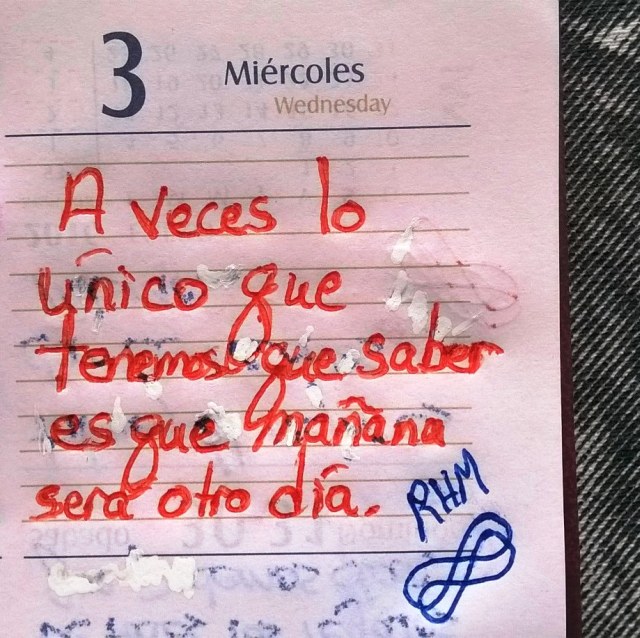 3 Miércoles
Wednesday
A veces lo
único que
tenemos que saber
es que mañana
será otro día.
RHM